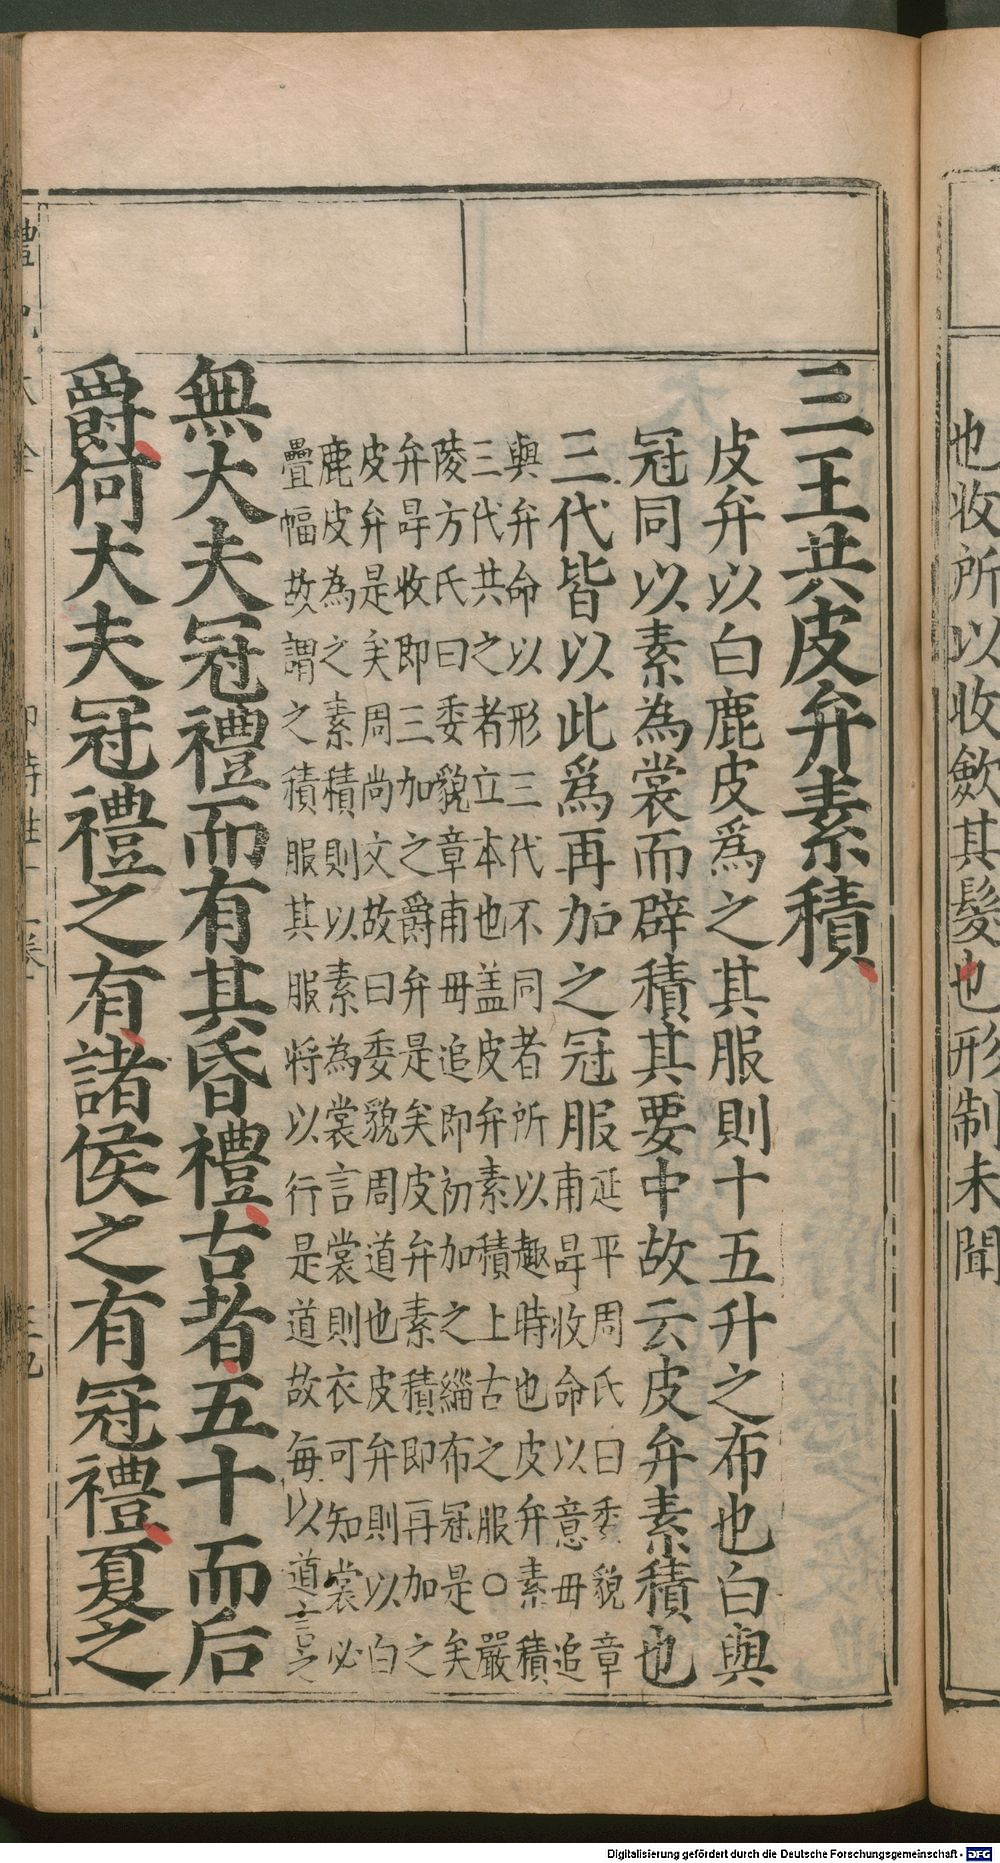 也收所以收歛其髮也形制未聞
三王共皮弁素積
皮弁以白鹿皮爲之其服則十五升之布也白與
冠同以素為裳而辟積其要中故云皮弁素積也
三代皆以此爲再加之冠服延平周氏曰委貌章
甫冔收命以意毋追
與弁命以形三代不同者所以趣時也皮弁素積
三代共之者立本也盖皮弁素積上古之服〇嚴
陵方氏曰委貌章甫毋追即初加之緇布冠是矣
弁冔收即三加之爵弁是矣皮弁素積即再加之
皮弁是矣周尚文故曰委貌周道也皮弁則以白
鹿皮為之素積則以素為裳言裳則衣可知裳必
疊幅故謂之積服其服將以行是道故每以道言之
無大夫冠禮而有其昏禮古者五十而后
爵何大夫冠禮之有諸侯之有冠禮夏之
Digitalisierung gefördert durch die Deutsche Forschungsgemeinschaft - DFG